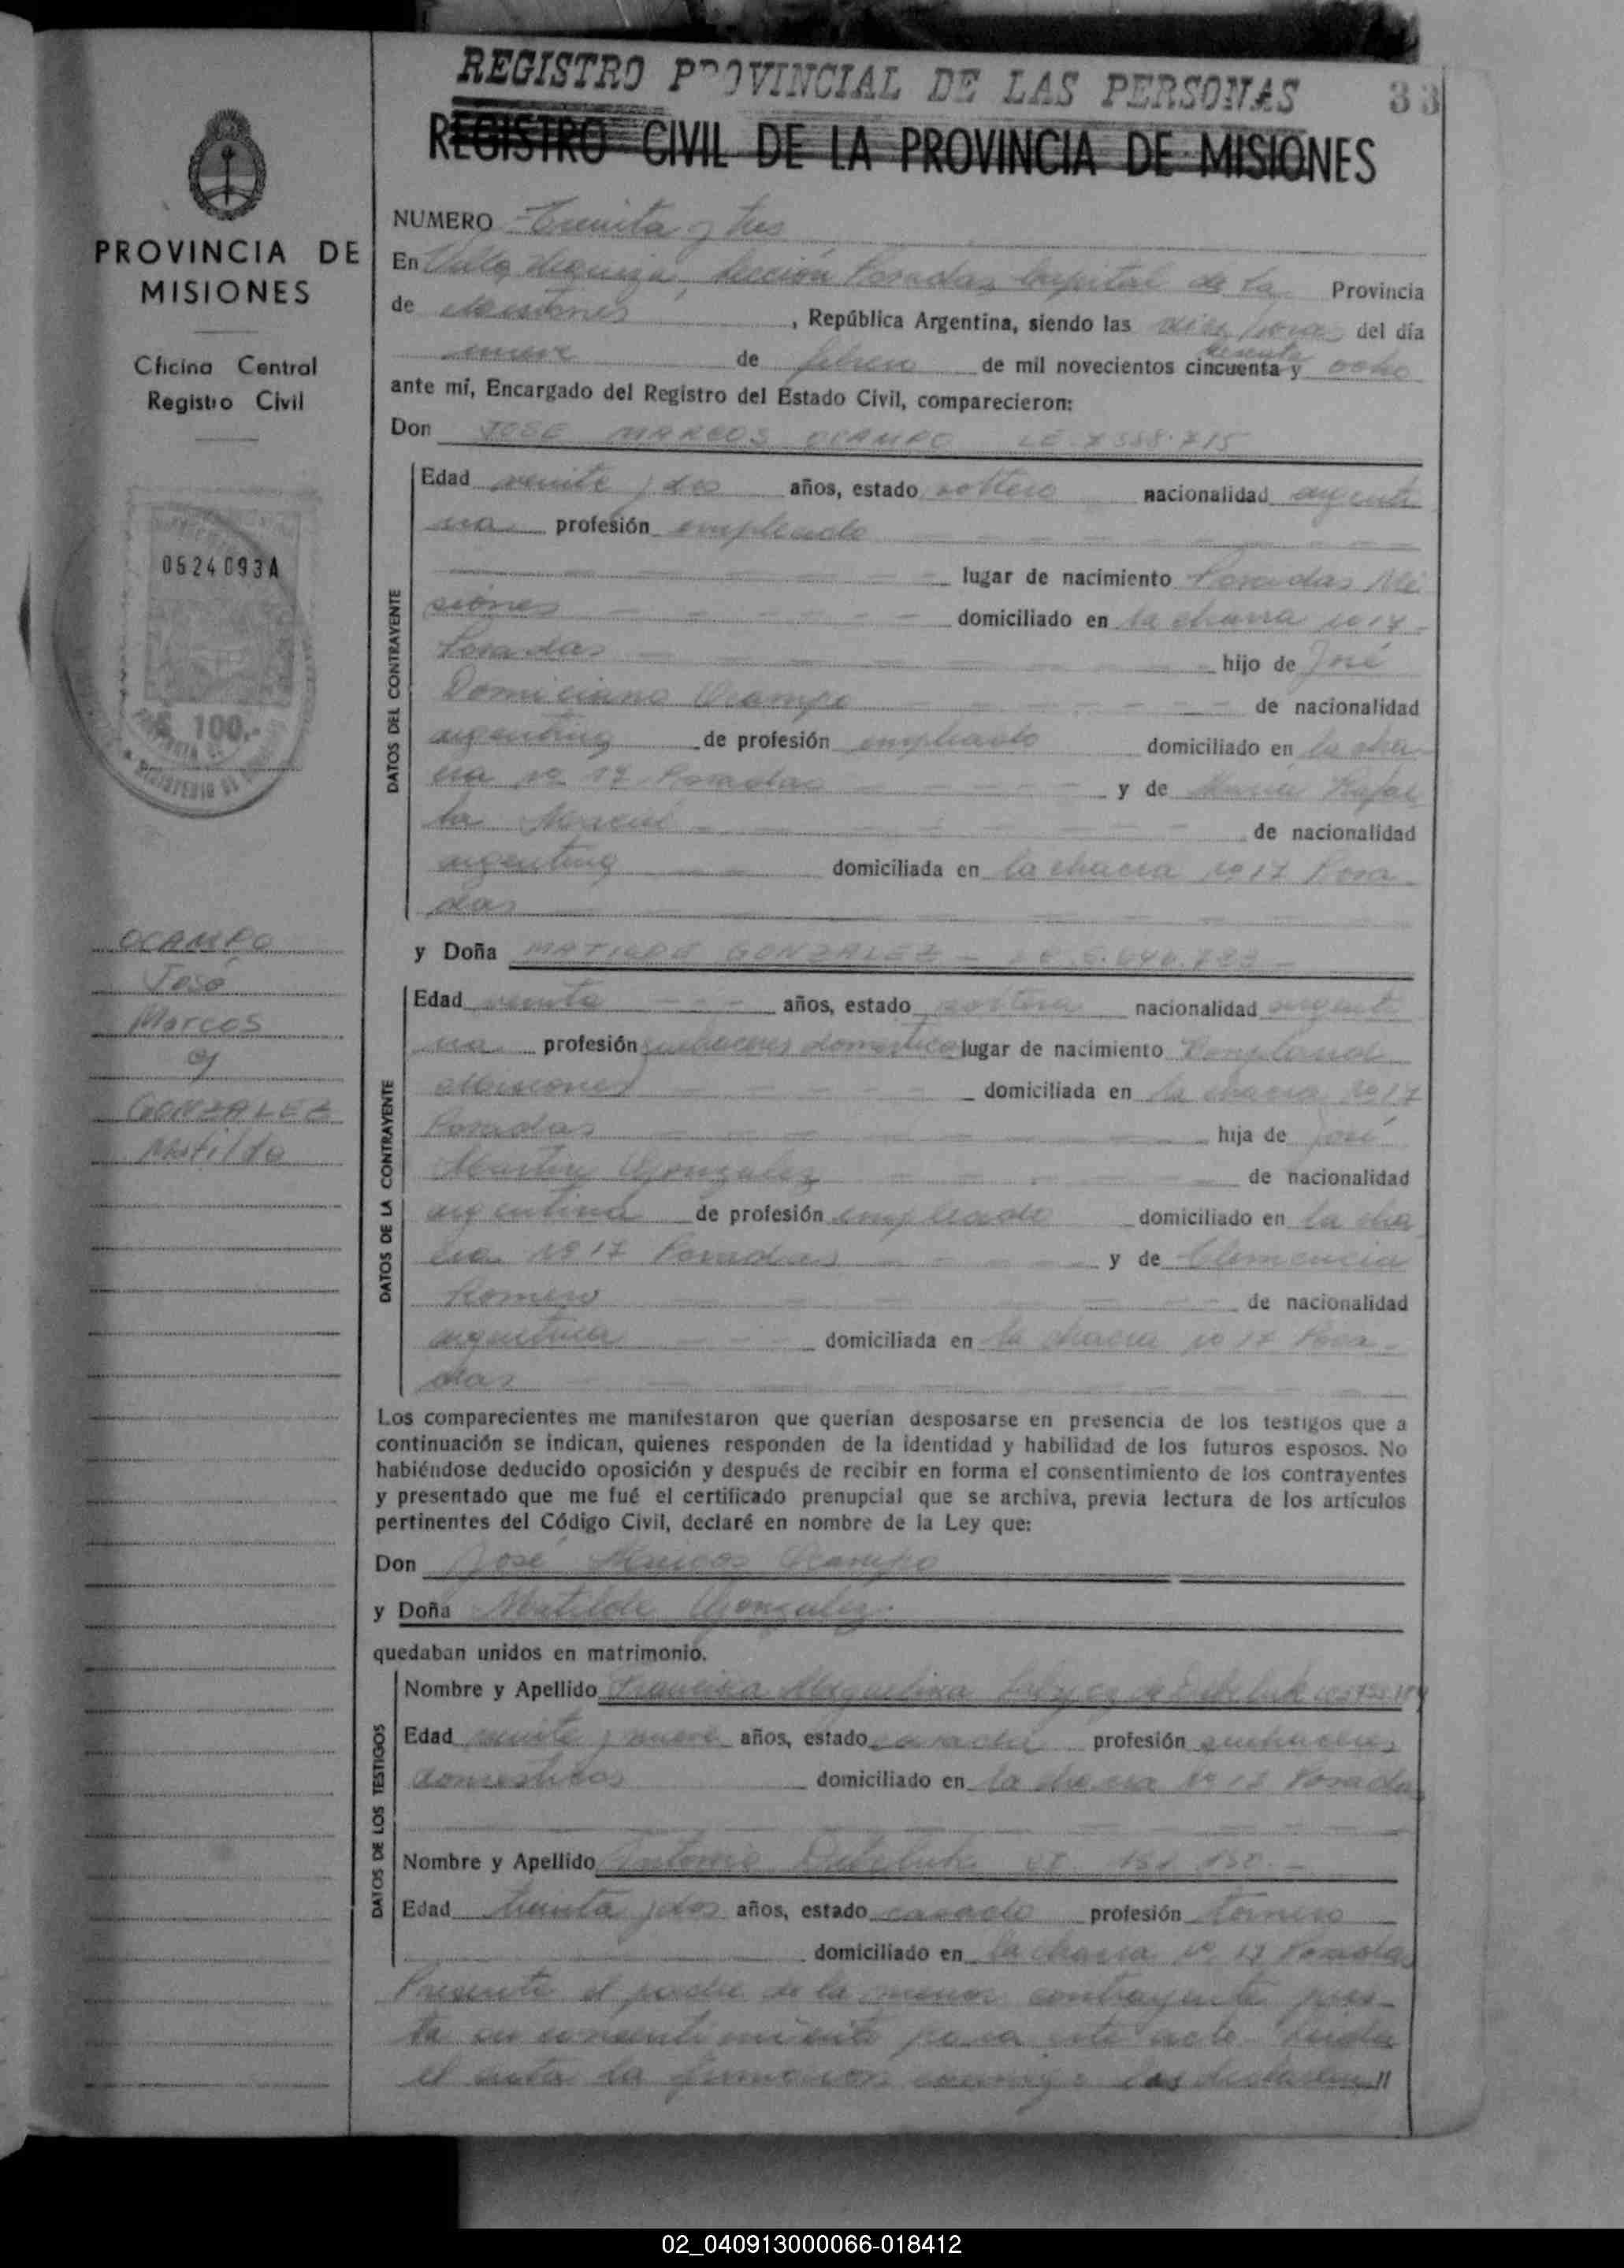 REGISTRO PROVINCIAL DE LAS PERSONAS 33
REGISTRO CIVIL DE LA PROVINCIA DE MISIONES
PROVINCIA DE
MISIONES
Oficina Central
Registro Civil
0524093A
$ 100.-
OCAMPO
José
Marcos
y
GONZALEZ
Matilde
NUMERO Treinta y tres
En Villa Urquiza, Sección Posadas Capital de la Provincia
de Misiones, República Argentina, siendo las diez horas del día
nueve de febrero de mil novecientos cincuenta y sesenta ocho
ante mí, Encargado del Registro del Estado Civil, comparecieron:
Don JOSE MARCOS OCAMPO LE.
DATOS DEL CONTRAYENTE
Edad veinte y dos años, estado soltero nacionalidad argenti
na profesión empleado
lugar de nacimiento Posadas Mi
siones domiciliado en la chacra No 17
Posadas hijo de José
Domiciano Ocampo de nacionalidad
argentina de profesión empleado domiciliado en la cha
cra No 17 Posadas y de María Rafae
la de nacionalidad
argentina domiciliada en la chacra No 17 Posa
das
y Doña MATILDE GONZALEZ
DATOS DE LA CONTRAYENTE
Edad años, estado soltera nacionalidad argenti
na profesión quehaceres domésticos lugar de nacimiento Bonpland
Misiones domiciliada en la chacra No 17
Posadas hija de José
Martín Gonzalez de nacionalidad
argentina de profesión empleado domiciliado en la cha
cra No 17 Posadas y de Clemencia
Romero de nacionalidad
argentina domiciliada en la chacra No 17 Posa
das
Los comparecientes me manifestaron que querían desposarse en presencia de los testigos que a
continuación se indican, quienes responden de la identidad y habilidad de los futuros esposos. No
habiéndose deducido oposición y después de recibir en forma el consentimiento de los contrayentes
y presentado que me fué el certificado prenupcial que se archiva, previa lectura de los artículos
pertinentes del Código Civil, declaré en nombre de la Ley que:
Don José Marcos Ocampo
y Doña Matilde Gonzalez
quedaban unidos en matrimonio.
DATOS DE LOS TESTIGOS
Nombre y Apellido Francisca Miguelina de
Edad veinte y nueve años, estado casada profesión quehaceres
domésticos domiciliado en la chacra No Posadas
Nombre y Apellido Antonio
Edad treinta y dos años, estado casado profesión tornero
domiciliado en la chacra No 17 Posadas
Presente el padre de la menor contrayente pres-
ta su consentimiento para este acto. Leida
el acta la firmaron conmigo los
02_040913000066-018412